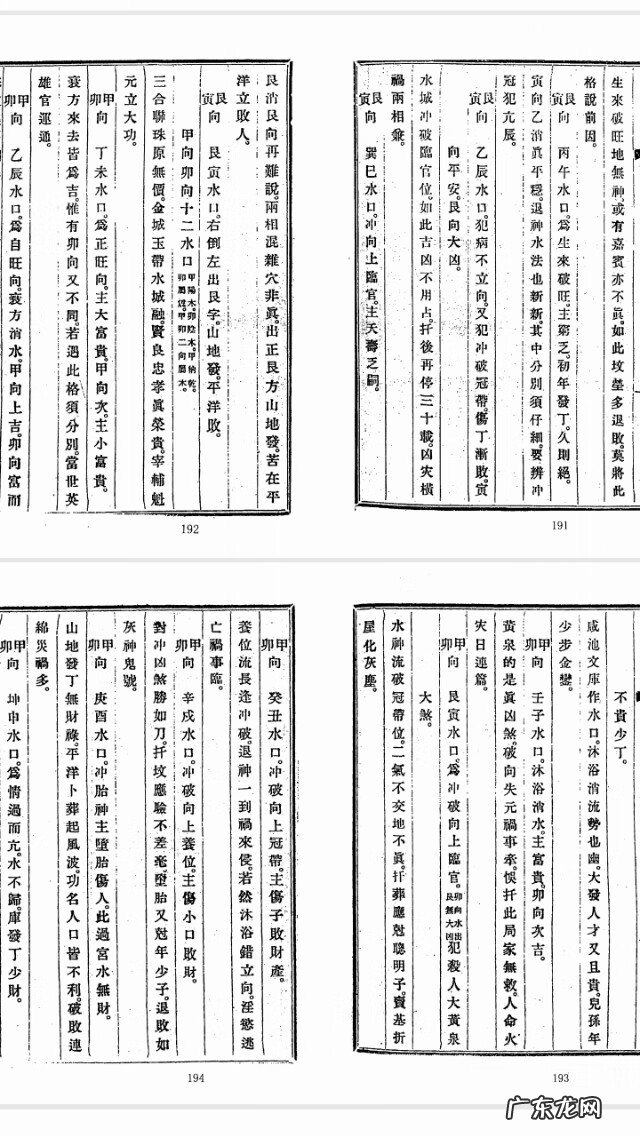 生來破旺地無神。或有嘉賓亦不眞。如此墳塋多退敗。莫將此
格說前因。
艮寅向 丙午水口。爲生來破旺。主窮乏。初年發丁。久則絕。
寅向乙消眞平穩。退神水法也新新。其中分別須仔細。要辨冲
冠犯亢辰。
艮寅向 乙辰水口。犯病不立向。又犯冲破冠帶。傷丁漸敗。寅
向平安。艮向大凶。
水城冲破臨官位。如此吉凶不用占。扦後再停三十載。凶灾橫
禍兩相兼。
艮寅向 巽巳水口。冲向上臨官。主夭壽乏嗣。
191
艮消艮向再難說。兩相混雜穴非眞。出正艮方山地發。苦在平
洋立敗人。
艮寅向 艮寅水口。右倒左出艮字。山地發。平洋敗。
甲向卯向十二水口 甲陽木。卯陰木。甲納乾。卯屬震。甲卯二向屬木。
三合聯珠原無價。金城玉帶水城融。賢良忠孝眞榮貴。宰輔魁
元立大功。
甲卯向 丁未水口。爲正旺向。主大富貴。甲向次。主小富貴。
衰方來去皆爲吉。惟有卯向又不同。若遇此格須分別。當世英
雄官運通。
甲卯向 乙辰水口。爲自旺向。衰方消水。甲向上吉。卯向富而
192
不貴少丁。
咸池文庫作水口。沐浴消流勢也幽。大發人才又且貴。兒孫年
少步金鑾。
甲卯向 壬子水口。沐浴消水。主富貴。卯向次吉。
黃泉的是眞凶煞。破向失元禍事牽。悞扦此局家無救。人命火
灾日連篇。
甲卯向 艮寅水口。爲冲破向上臨官。卯向水出艮無大凶 犯殺人大黃泉
大煞。
水神流破冠帶位。二氣不交地不眞。扦葬應尅聰明子。賣基折
屋化灰塵。
193
甲卯向 癸丑水口。冲破向上冠帶。主傷子敗財產。
養位流長逢冲破。退神一到禍來侵。若然沐浴錯立向。淫慾逃
亡禍事臨。
甲卯向 辛戌水口。冲破向上養位。主傷小口敗財。
對冲凶煞勝如刀。扦坟應驗不差毫。墮胎又尅年少子。退敗如
灰神鬼號。
甲卯向 庚酉水口。冲胎神主墮胎傷人。此過宮水無財。
山地發丁無財祿。平洋卜葬起風波。功名人口皆不利。破敗連
綿災禍多。
甲卯向 坤申水口。爲情過而亢。水不歸庫。發丁少財。
194
广东龙网